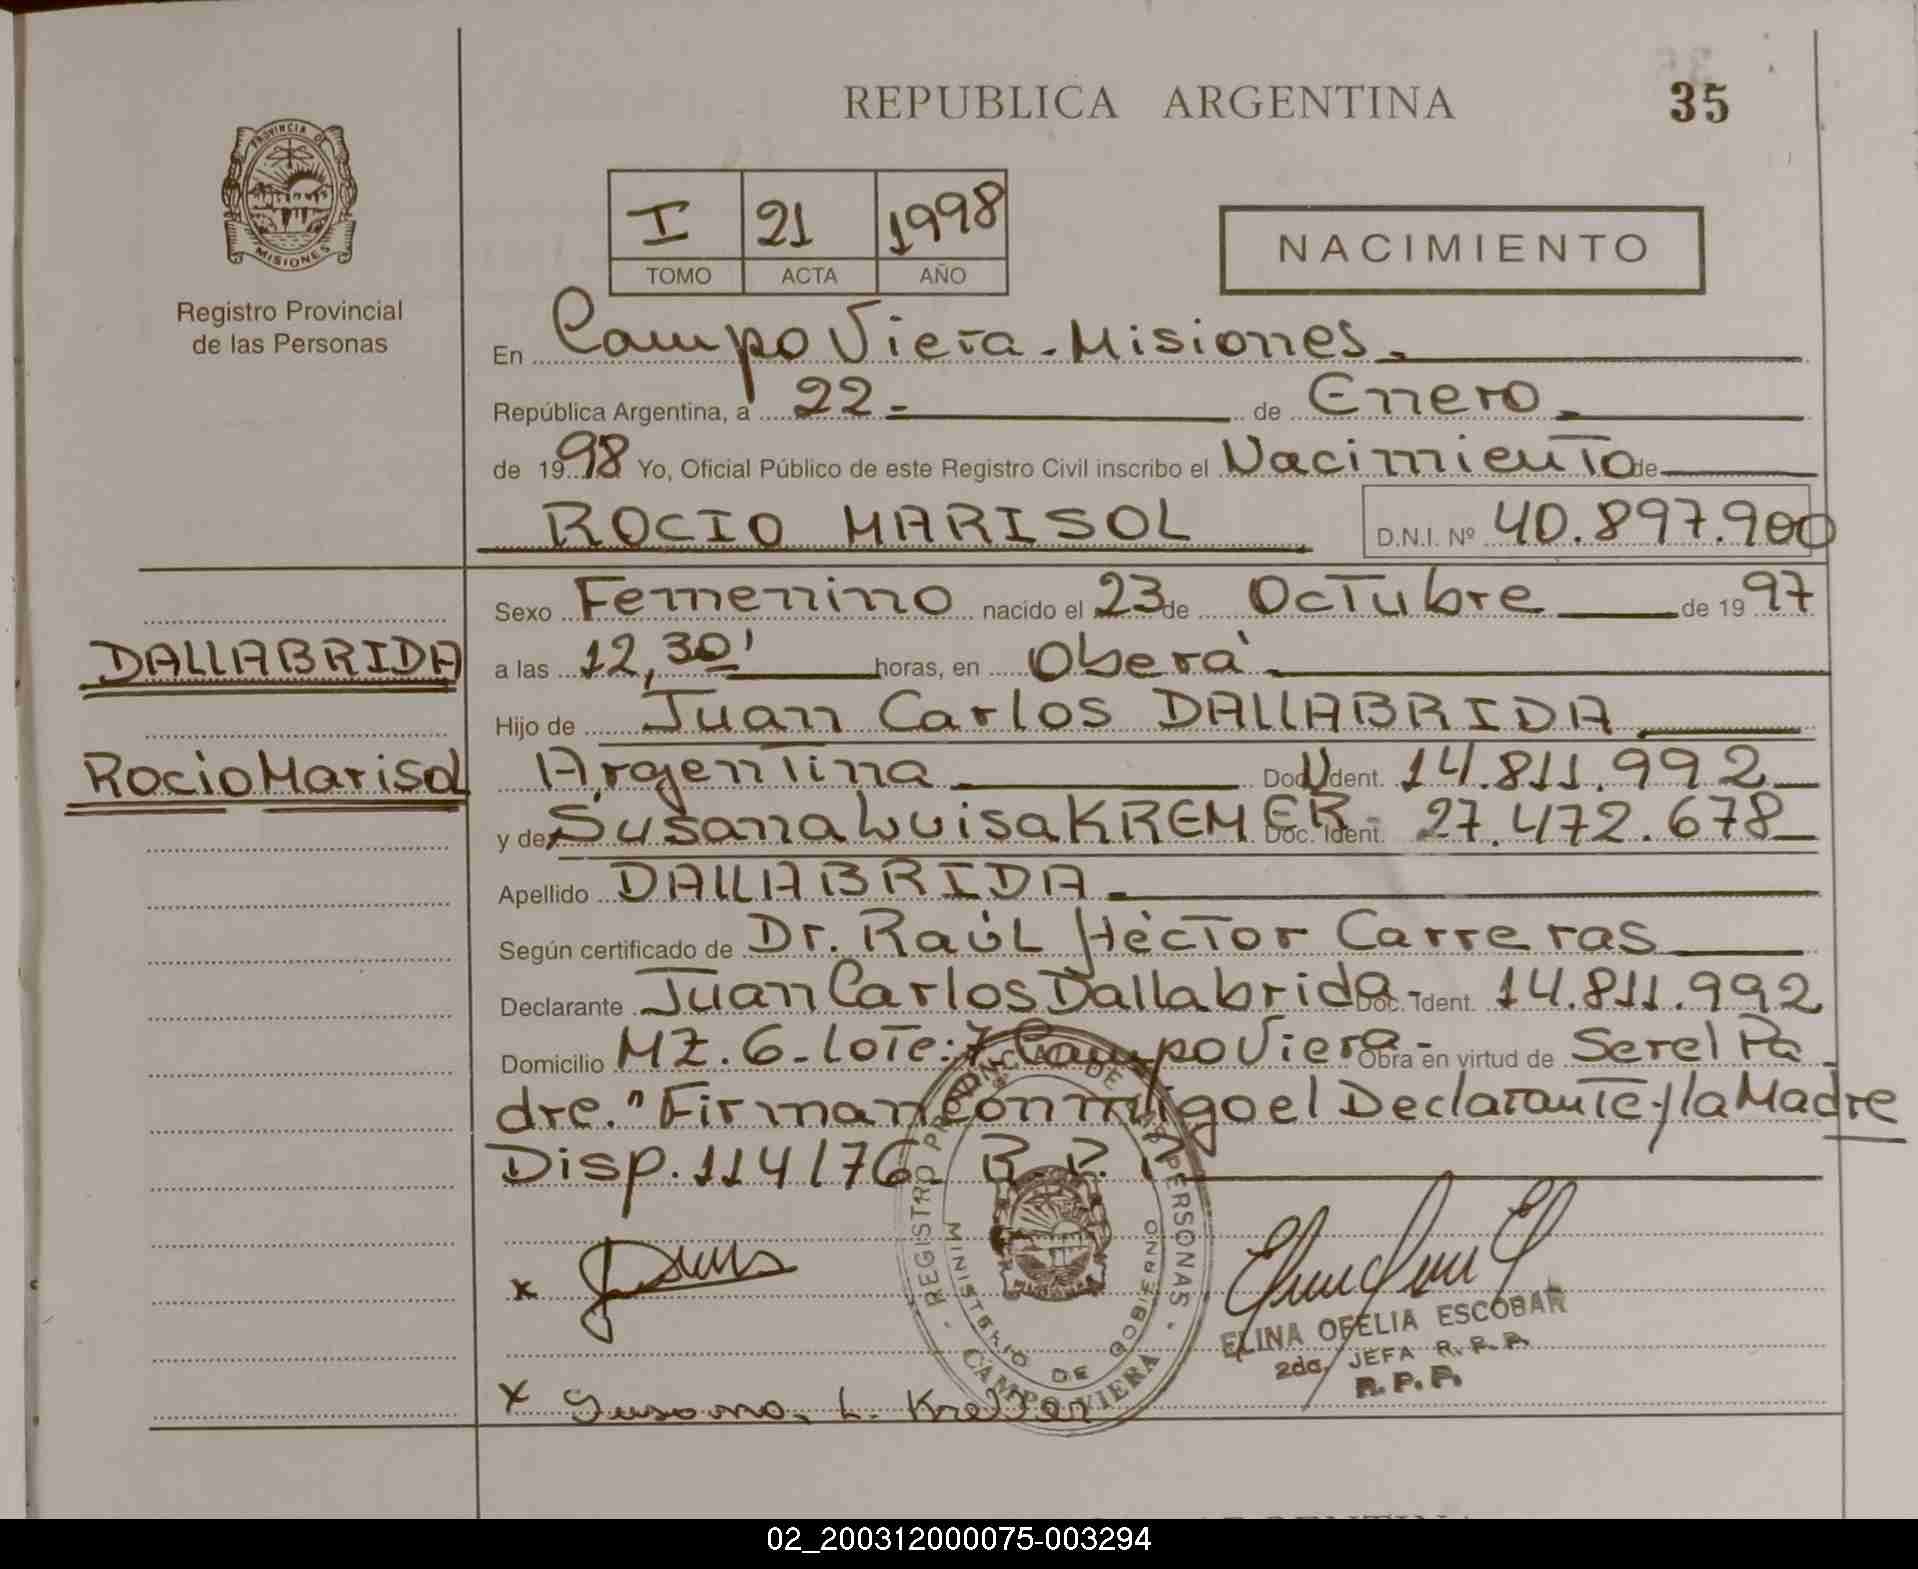 REPUBLICA ARGENTINA
35
PROVINCIA DE
MISIONES
Registro Provincial
de las Personas
I 21 1998
TOMO ACTA AÑO
NACIMIENTO
En Campo Viera - Misiones.
República Argentina, a 22 - de Enero.
de 1998 Yo, Oficial Público de este Registro Civil inscribo el Nacimiento de
ROCIO MARISOL D.N.I. Nº 40.897.900
Sexo Femenino nacido el 23 de Octubre de 1997
DALLABRIDA
a las 12,30' horas, en Oberá
Hijo de Juan Carlos DALLABRIDA
Rocio Marisol
Argentina Doc. Ident. 14.811.992
y de Susana Luisa KREMER Doc. Ident. 27.472.678
Apellido DALLABRIDA
Según certificado de Dr. Raúl Héctor Carreras
Declarante Juan Carlos Dallabrida - Doc. Ident. 14.811.992
Domicilio MZ. 6 - Lote: 7 Campo Viera - Obra en virtud de Ser el Pa
dre. " Firman Conmigo el Declarante y la Madre
Disp. 114/76 R. P.
REGISTRO PROVINCIAL DE LAS PERSONAS
MINISTERIO DE GOBIERNO
CAMPO VIERA
x
ELINA OFELIA ESCOBAR
2da. JEFA R. P. P.
R. P. P.
x Susana. L. Kremer
02_200312000075-003294